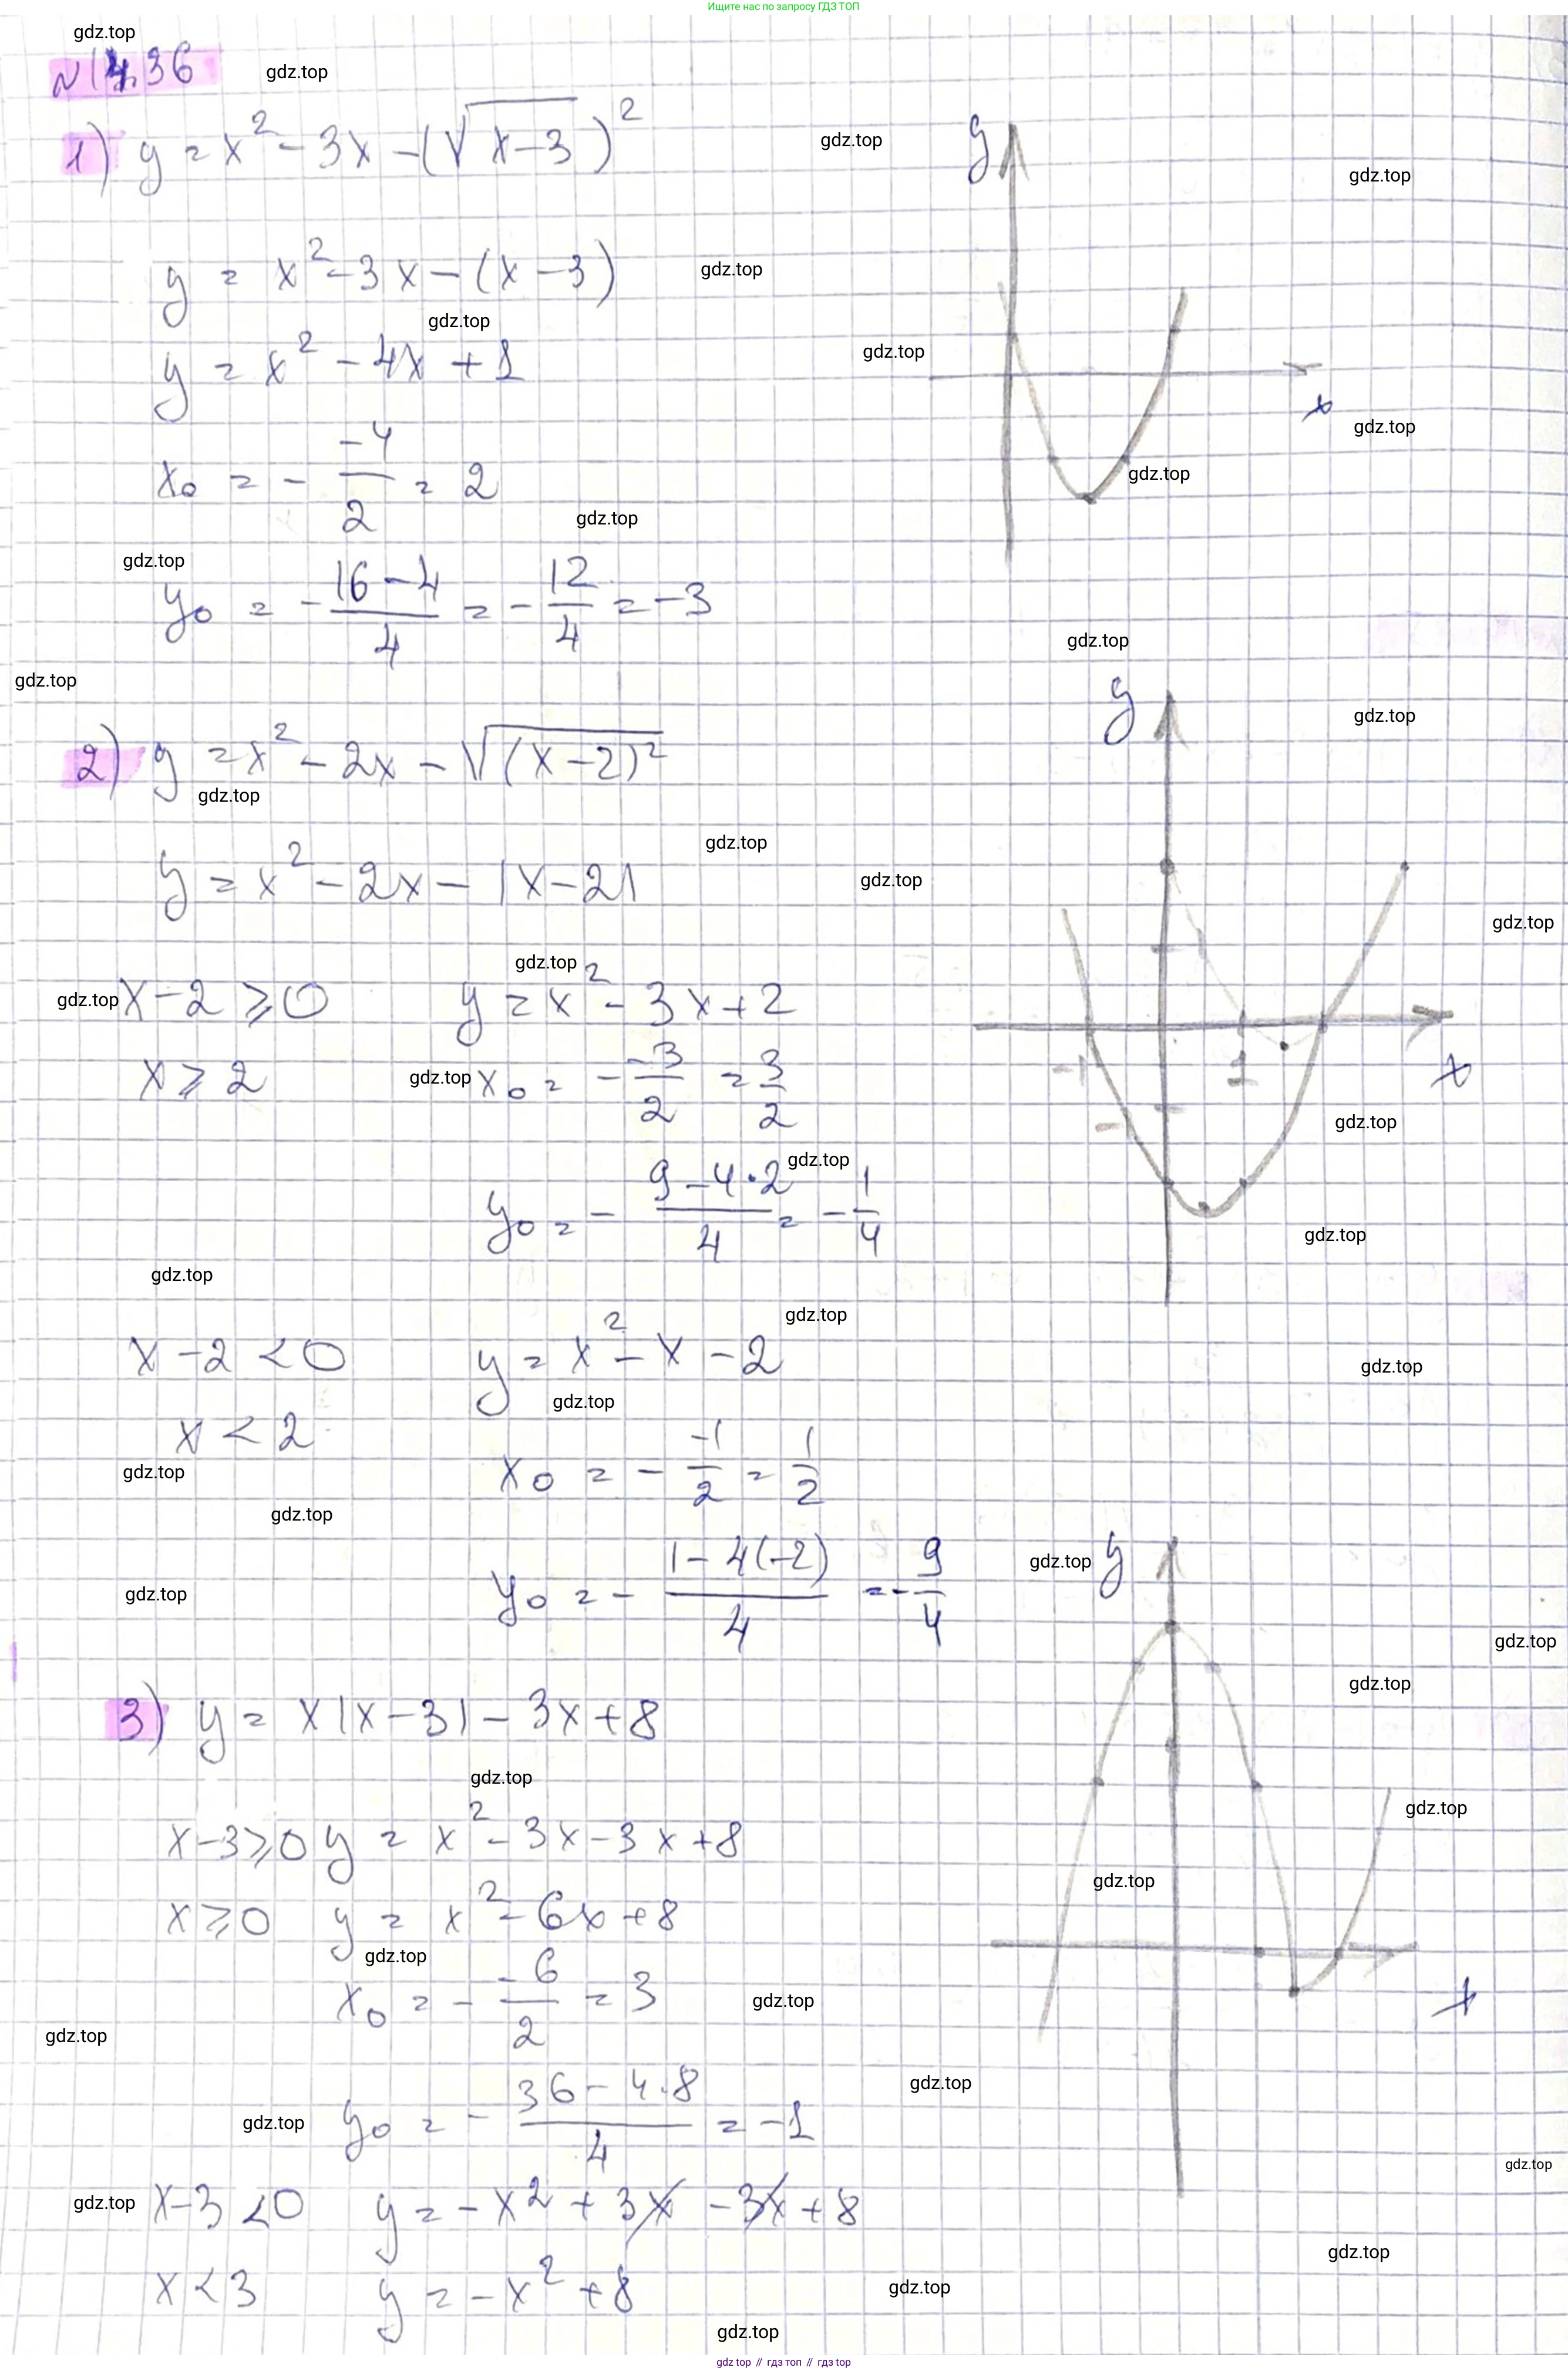 Ищите нас по запросу ГДЗ ТОП
gdz.top
N14.36
gdz.top
1) y = x² - 3x - (√(x-3))²
gdz.top
y
gdz.top
y = x² - 3x - (x - 3)
gdz.top
gdz.top
y = x² - 4x + 1
gdz.top
x
gdz.top
x₀ = - -4/2 = 2
gdz.top
gdz.top
gdz.top
y₀ = - (16 - 4)/4 = - 12/4 = -3
gdz.top
gdz.top
y
gdz.top
2) y = x² - 2x - √((x-2)²)
gdz.top
gdz.top
y = x² - 2x - |x-2|
gdz.top
gdz.top
gdz.top
gdz.top x - 2 ⩾ 0 y = x² - 3x + 2
x ⩾ 2 gdz.top x₀ = - -3/2 = 3/2
-1 1 x
gdz.top
gdz.top
y₀ = - (9 - 4·2)/4 = - 1/4
gdz.top
gdz.top
gdz.top
x - 2 < 0 y = x² - x - 2
gdz.top
gdz.top
x < 2
gdz.top
x₀ = - -1/2 = 1/2
gdz.top
gdz.top y
gdz.top
y₀ = - (1 - 4(-2))/4 = - 9/4
gdz.top
gdz.top
3) y = x|x-3| - 3x + 8
gdz.top
gdz.top
x-3⩾0 y = x² - 3x - 3x + 8
gdz.top
x⩾0 y = x² - 6x + 8
gdz.top
x₀ = - -6/2 = 3
gdz.top
x
gdz.top
gdz.top
y₀ = - (36 - 4·8)/4 = -1
gdz.top
gdz.top
gdz.top x-3 < 0 y = -x² + 3x - 3x + 8
gdz.top
x < 3 y = -x² + 8
gdz.top
gdz.top
gdz top // гдз топ // гдз top